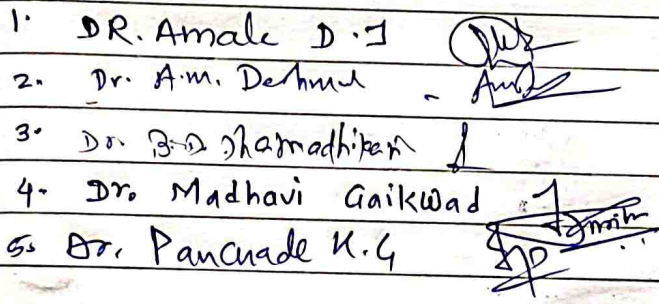 1. DR. Amale D.J
2. Dr. A.M. Deshmul
3. Dr. B.D. Dharmadhikari
4. Dr. Madhavi Gaikwad
5. Dr. Panchade K.G